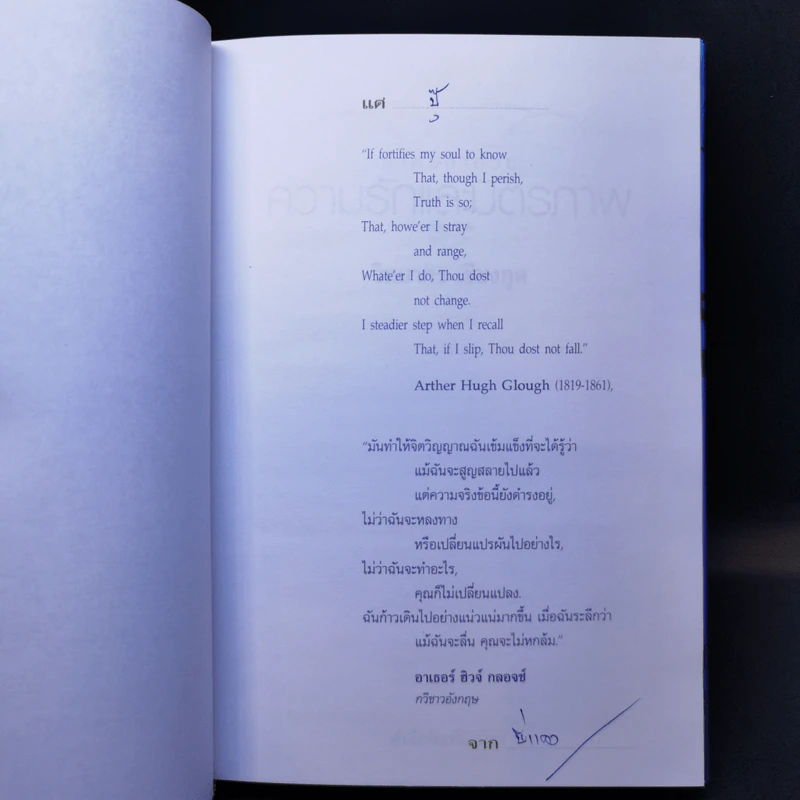 แด่ ปุ๊
"If fortifies my soul to know
That, though I perish,
Truth is so;
That, howe'er I stray
and range,
Whate'er I do, Thou dost
not change.
I steadier step when I recall
That, if I slip, Thou dost not fall."
Arther Hugh Glough (1819-1861),
"มันทำให้จิตวิญญาณฉันเข้มแข็งที่จะได้รู้ว่า
แม้ฉันจะสูญสลายไปแล้ว
แต่ความจริงข้อนี้ยังดำรงอยู่,
ไม่ว่าฉันจะหลงทาง
หรือเปลี่ยนแปรผันไปอย่างไร,
ไม่ว่าฉันจะทำอะไร,
คุณก็ไม่เปลี่ยนแปลง.
ฉันก้าวเดินไปอย่างแน่วแน่มากขึ้น เมื่อฉันระลึกว่า
แม้ฉันจะลื่น คุณจะไม่หกล้ม."
อาเธอร์ ฮิวจ์ กลอจช์
กวีชาวอังกฤษ
จาก